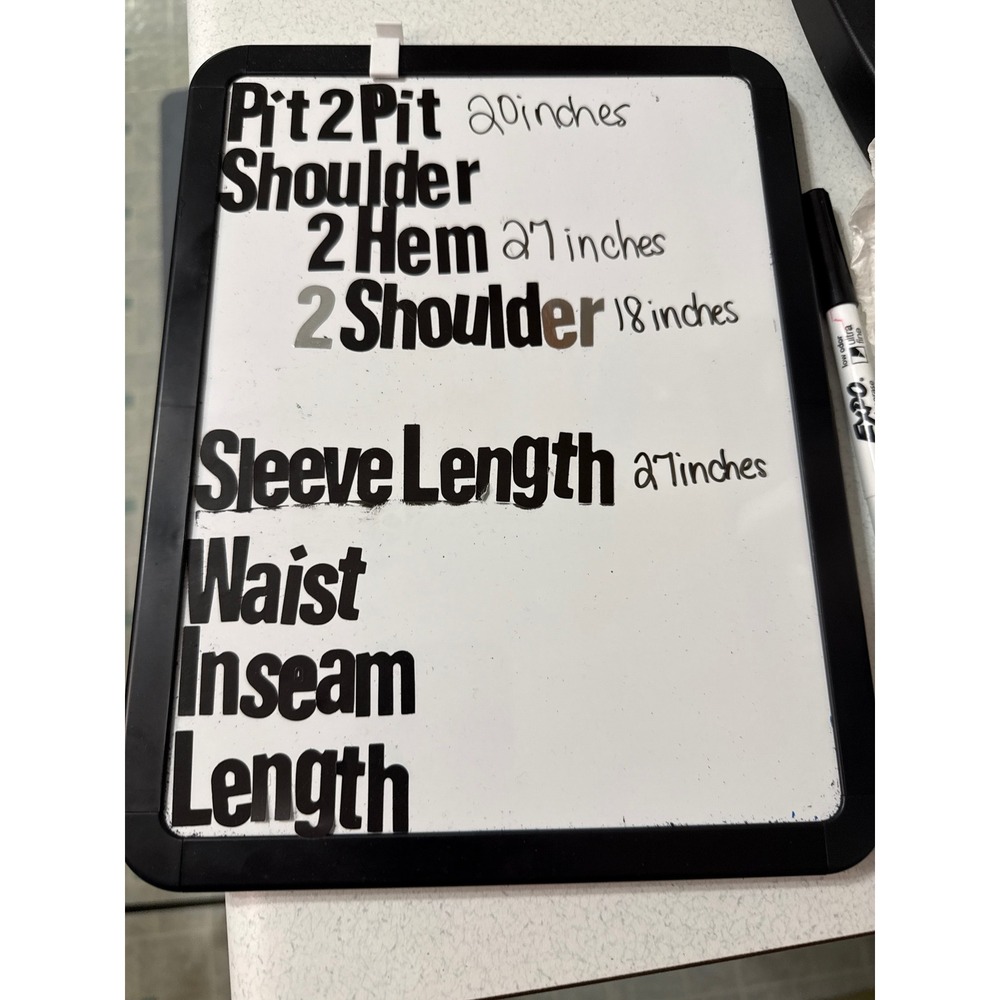 Pit2Pit 20inches
Shoulder
2 Hem 27 inches
2 Shoulder 18 inches
Sleeve Length 27inches
Waist
Inseam
Length
low odor
ultra fine
EXPO